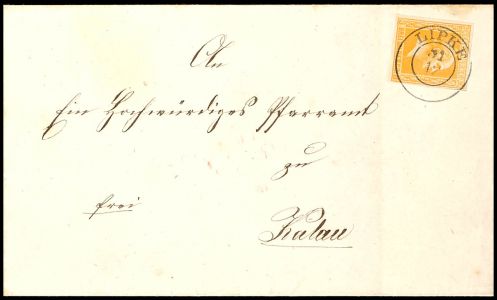 LIPKE
31
12
An
Ein Hochwürdiges Pfarramt
zu
frei
Kalau